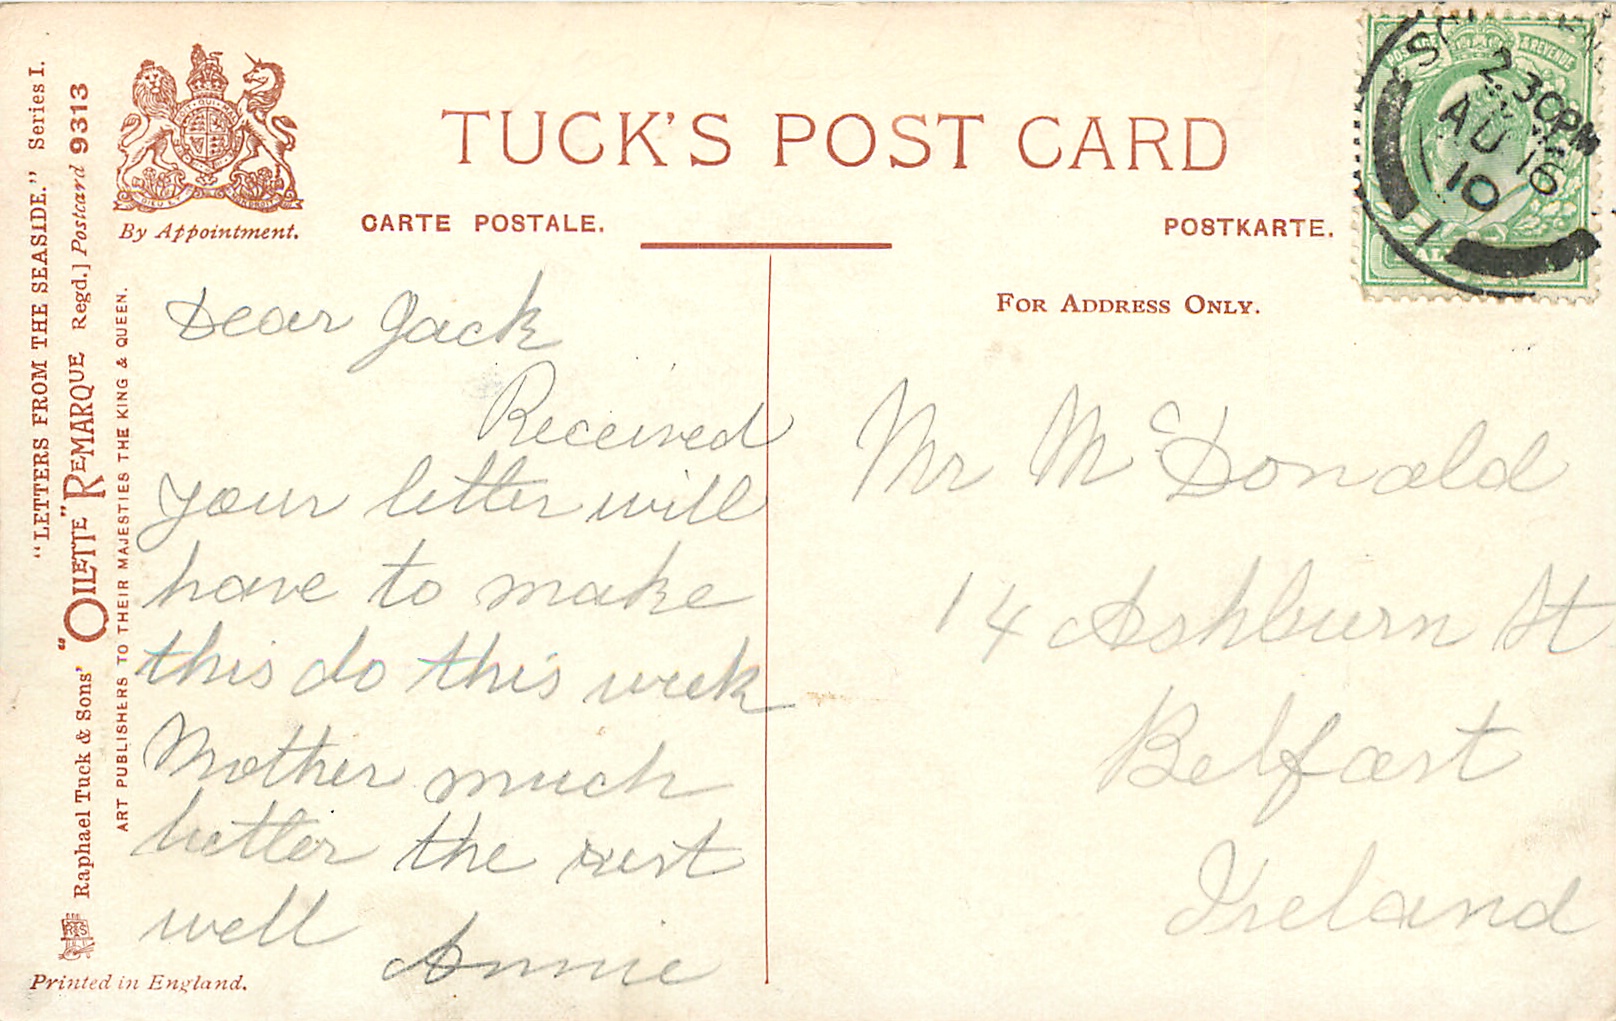 "LETTERS FROM THE SEASIDE." Series I.
Raphael Tuck & Sons' "OILETTE" REMARQUE Regd.] Postcard 9313
ART PUBLISHERS TO THEIR MAJESTIES THE KING & QUEEN.
By Appointment.
TUCK'S POST CARD
CARTE POSTALE.
POSTKARTE.
FOR ADDRESS ONLY.
POSTAGE & REVENUE
2 30PM
AU 16
10
Dear Jack
Received
your letter will
have to make
this do this week
Mother much
better the rest
well Annie
Mr McDonald
14 Ashburn St
Belfast
Ireland
Printed in England.